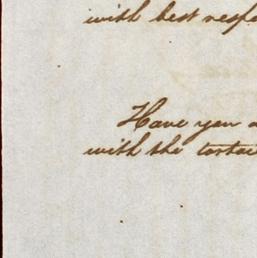 with best respe
Have you a
with the tortoi